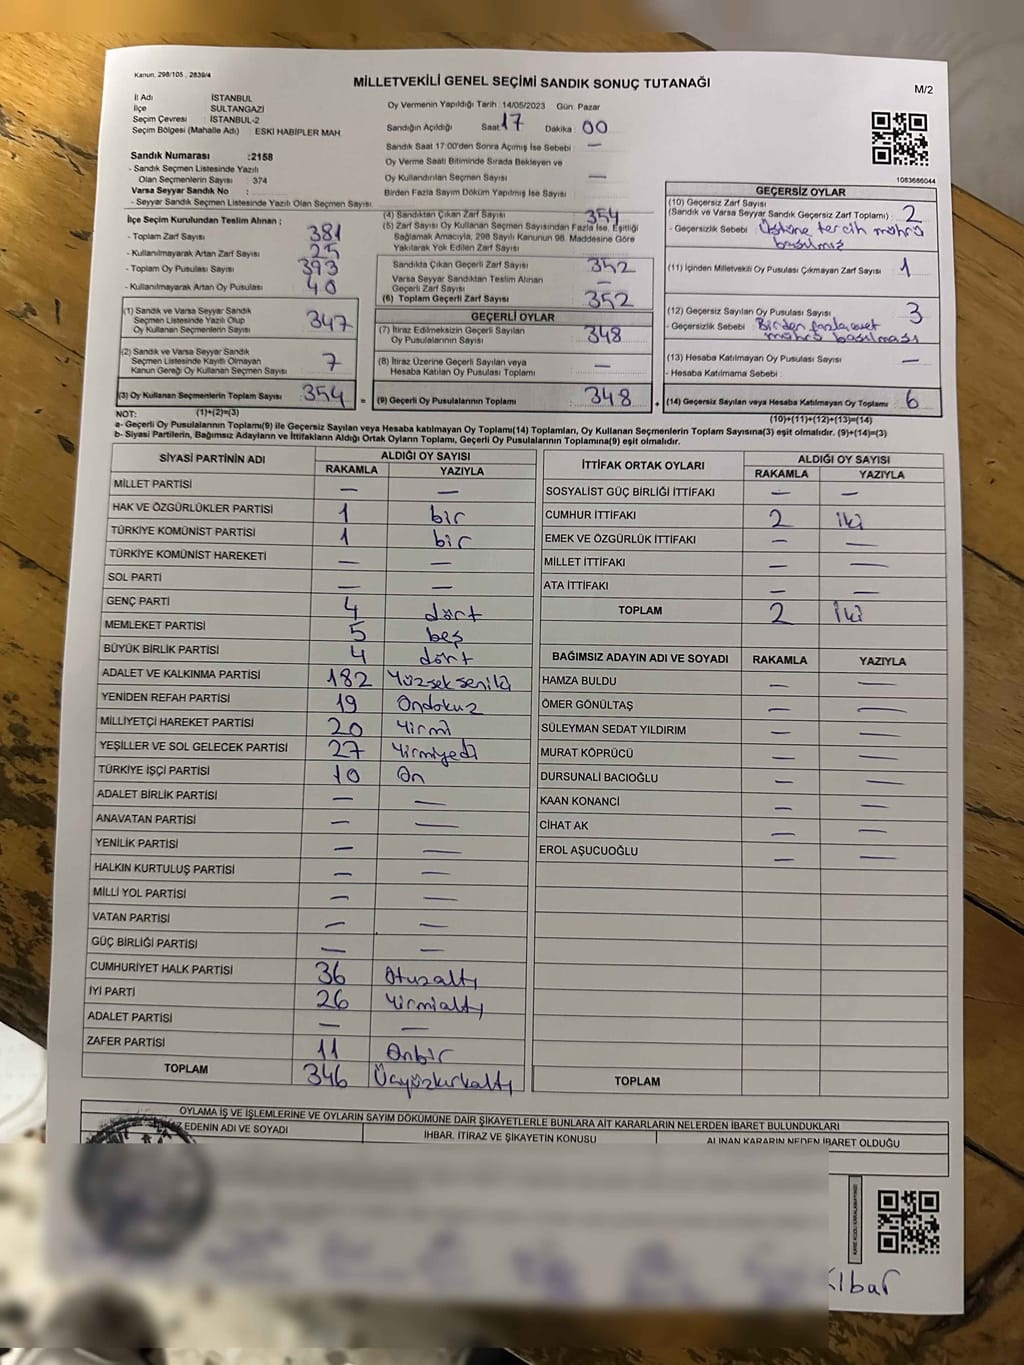 Kanun, 298/105 , 2839/4
MİLLETVEKİLİ GENEL SEÇİMİ SANDIK SONUÇ TUTANAĞI
M/2
İl Adı İSTANBUL
İlçe SULTANGAZİ
Seçim Çevresi : İSTANBUL-2
Seçim Bölgesi (Mahalle Adı) : ESKİ HABİPLER MAH.
Sandık Numarası :2158
- Sandık Seçmen Listesinde Yazılı
Olan Seçmenlerin Sayısı : 374
Varsa Seyyar Sandık No :
- Seyyar Sandık Seçmen Listesinde Yazılı Olan Seçmen Sayısı:
Oy Vermenin Yapıldığı Tarih : 14/05/2023 Gün: Pazar
Sandığın Açıldığı Saat: 17 Dakika : 00
Sandık Saat 17:00'den Sonra Açımış İse Sebebi : —
Oy Verme Saati Bitiminde Sırada Bekleyen ve
Oy Kullandırılan Seçmen Sayısı : —
Birden Fazla Sayım Döküm Yapılmış İse Sayısı :
1083686044
İlçe Seçim Kurulundan Teslim Alınan ;
- Toplam Zarf Sayısı : 381
- Kullanılmayarak Artan Zarf Sayısı : 25
- Toplam Oy Pusulası Sayısı : 393
- Kullanılmayarak Artan Oy Pusulası : 40
(1) Sandık ve Varsa Seyyar Sandık
Seçmen Listesinde Yazılı Olup
Oy Kullanan Seçmenlerin Sayısı : 347
(2) Sandık ve Varsa Seyyar Sandık
Seçmen Listesinde Kayıtlı Olmayan
Kanun Gereği Oy Kullanan Seçmen Sayısı : 7
(3) Oy Kullanan Seçmenlerin Toplam Sayısı : 354
(4) Sandıktan Çıkan Zarf Sayısı : 354
(5) Zarf Sayısı Oy Kullanan Seçmen Sayısından Fazla İse, Eşitliği
Sağlamak Amacıyla; 298 Sayılı Kanunun 98. Maddesine Göre
Yakılarak Yok Edilen Zarf Sayısı :
Sandıkta Çıkan Geçerli Zarf Sayısı : 352
Varsa Seyyar Sandıktan Teslim Alınan
Geçerli Zarf Sayısı : —
(6) Toplam Geçerli Zarf Sayısı : 352
GEÇERLİ OYLAR
(7) İtiraz Edilmeksizin Geçerli Sayılan
Oy Pusulalarının Sayısı : 348
(8) İtiraz Üzerine Geçerli Sayılan veya
Hesaba Katılan Oy Pusulası Toplamı : —
= (9) Geçerli Oy Pusulalarının Toplamı : 348
GEÇERSİZ OYLAR
(10) Geçersiz Zarf Sayısı
(Sandık ve Varsa Seyyar Sandık Geçersiz Zarf Toplamı) : 2
- Geçersizlik Sebebi : Üstüne tercih mührü
basılmış
(11) İçinden Milletvekili Oy Pusulası Çıkmayan Zarf Sayısı : 1
(12) Geçersiz Sayılan Oy Pusulası Sayısı : 3
- Geçersizlik Sebebi : Birden fazla evet
mührü basılması
(13) Hesaba Katılmayan Oy Pusulası Sayısı : —
- Hesaba Katılmama Sebebi :
+ (14) Geçersiz Sayılan veya Hesaba Katılmayan Oy Toplamı : 6
NOT: (1)+(2)=(3) (10)+(11)+(12)+(13)=(14)
a- Geçerli Oy Pusulalarının Toplamı(9) ile Geçersiz Sayılan veya Hesaba katılmayan Oy Toplamı(14) Toplamları, Oy Kullanan Seçmenlerin Toplam Sayısına(3) eşit olmalıdır. (9)+(14)=(3)
b- Siyasi Partilerin, Bağımsız Adayların ve İttifakların Aldığı Ortak Oyların Toplamı, Geçerli Oy Pusulalarının Toplamına(9) eşit olmalıdır.
SİYASİ PARTİNİN ADI ALDIĞI OY SAYISI
RAKAMLA YAZIYLA
MİLLET PARTİSİ — —
HAK VE ÖZGÜRLÜKLER PARTİSİ 1 bir
TÜRKİYE KOMÜNİST PARTİSİ 1 bir
TÜRKİYE KOMÜNİST HAREKETİ — —
SOL PARTİ — —
GENÇ PARTİ 4 dört
MEMLEKET PARTİSİ 5 beş
BÜYÜK BİRLİK PARTİSİ 4 dört
ADALET VE KALKINMA PARTİSİ 182 Yüzsekseniki
YENİDEN REFAH PARTİSİ 19 Ondokuz
MİLLİYETÇİ HAREKET PARTİSİ 20 Yirmi
YEŞİLLER VE SOL GELECEK PARTİSİ 27 Yirmiyedi
TÜRKİYE İŞÇİ PARTİSİ 10 On
ADALET BİRLİK PARTİSİ — —
ANAVATAN PARTİSİ — —
YENİLİK PARTİSİ — —
HALKIN KURTULUŞ PARTİSİ — —
MİLLİ YOL PARTİSİ — —
VATAN PARTİSİ — —
GÜÇ BİRLİĞİ PARTİSİ — —
CUMHURİYET HALK PARTİSİ 36 Otuzaltı
İYİ PARTİ 26 Yirmialtı
ADALET PARTİSİ — —
ZAFER PARTİSİ 11 Onbir
TOPLAM 346 Üçyüzkırkaltı
İTTİFAK ORTAK OYLARI ALDIĞI OY SAYISI
RAKAMLA YAZIYLA
SOSYALİST GÜÇ BİRLİĞİ İTTİFAKI — —
CUMHUR İTTİFAKI 2 iki
EMEK VE ÖZGÜRLÜK İTTİFAKI — —
MİLLET İTTİFAKI — —
ATA İTTİFAKI — —
TOPLAM 2 İki
BAĞIMSIZ ADAYIN ADI VE SOYADI RAKAMLA YAZIYLA
HAMZA BULDU — —
ÖMER GÖNÜLTAŞ — —
SÜLEYMAN SEDAT YILDIRIM — —
MURAT KÖPRÜCÜ — —
DURSUNALİ BACIOĞLU — —
KAAN KONANCİ — —
CİHAT AK — —
EROL AŞUCUOĞLU — —
TOPLAM
OYLAMA İŞ VE İŞLEMLERİNE VE OYLARIN SAYIM DÖKÜMÜNE DAİR ŞİKAYETLERLE BUNLARA AİT KARARLARIN NELERDEN İBARET BULUNDUKLARI
EDENİN ADI VE SOYADI İHBAR, İTİRAZ VE ŞİKAYETİN KONUSU ALINAN KARARIN NEDEN İBARET OLDUĞU